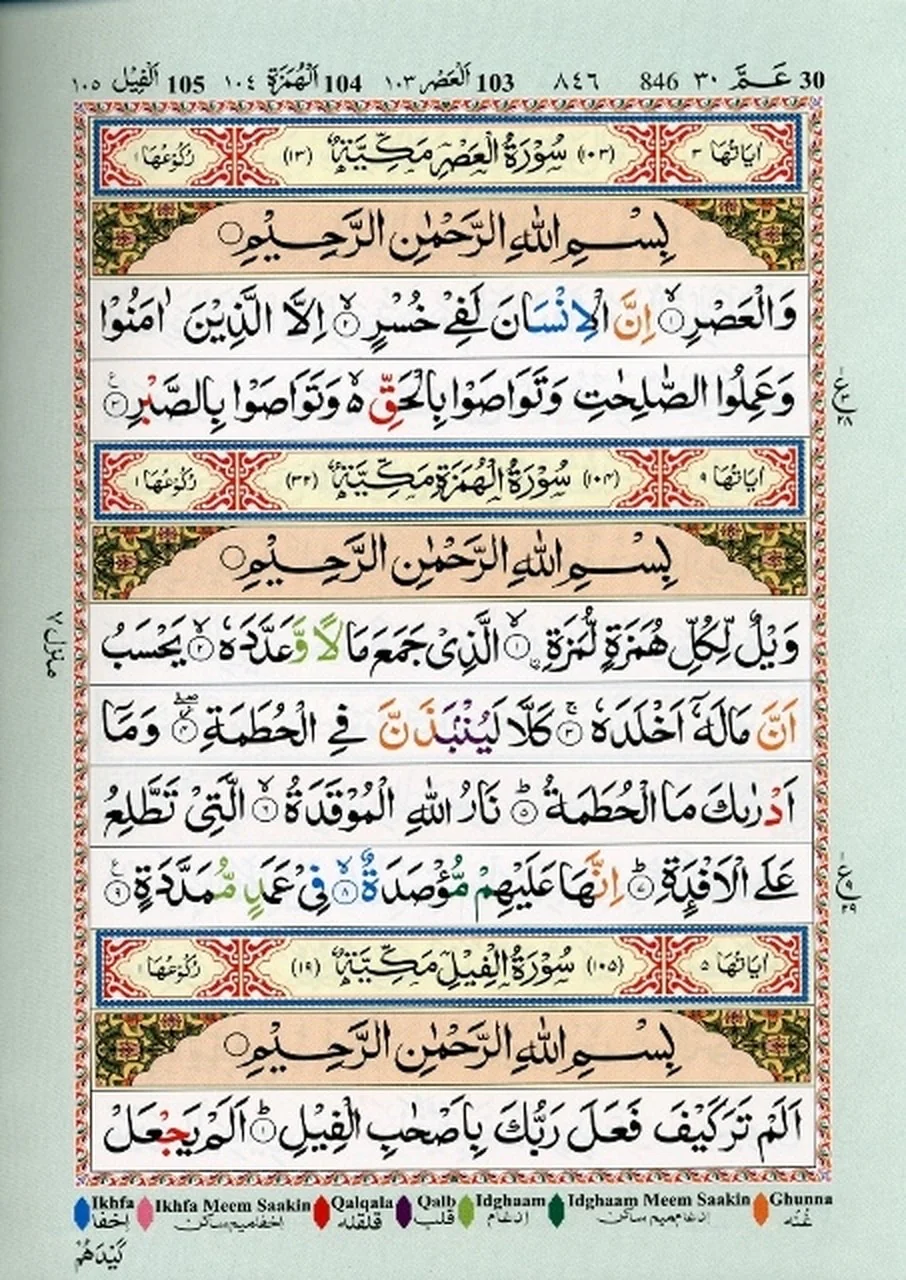 30 عَمَّ ٣٠ 846 ٨٤٦ 103 اَلْعَصْر ١٠٣ 104 اَلْهُمَزَة ١٠٤ 105 اَلْفِيْل ١٠٥
اٰيَاتُهَا ٣ (١٠٣) سُوْرَةُ الْعَصْرِ مَكِّيَّةٌ (١٣) رُكُوْعُهَا ١
بِسْمِ اللّٰهِ الرَّحْمٰنِ الرَّحِيْمِ ○
وَالْعَصْرِ ۙ‏﴿١﴾ اِنَّ الْاِنْسَانَ لَفِىْ خُسْرٍ ۙ‏﴿٢﴾ اِلَّا الَّذِيْنَ اٰمَنُوْا
وَعَمِلُوا الصّٰلِحٰتِ وَتَوَاصَوْا بِالْحَقِّ ۙ۬ وَتَوَاصَوْا بِالصَّبْرِ ﴿٣﴾
ع ٣ ٢٨
اٰيَاتُهَا ٩ (١٠٤) سُوْرَةُ الْهُمَزَةِ مَكِّيَّةٌ (٣٢) رُكُوْعُهَا ١
بِسْمِ اللّٰهِ الرَّحْمٰنِ الرَّحِيْمِ ○
وَيْلٌ لِّكُلِّ هُمَزَةٍ لُّمَزَةِ ۙ‏﴿١﴾ اۨلَّذِىْ جَمَعَ مَالًا وَّعَدَّدَهٗ ۙ‏﴿٢﴾ يَحْسَبُ
منزل ٧
اَنَّ مَالَهٗۤ اَخْلَدَهٗ ۚ‏﴿٣﴾ كَلَّا لَيُنْۢبَذَنَّ فِى الْحُطَمَةِ ۖ‏﴿٤﴾ وَمَاۤ
اَدْرٰىكَ مَا الْحُطَمَةُ ؕ‏﴿٥﴾ نَارُ اللّٰهِ الْمُوْقَدَةُ ۙ‏﴿٦﴾ الَّتِىْ تَطَّلِعُ
عَلَى الْاَفْـِٕدَةِ ؕ‏﴿٧﴾ اِنَّهَا عَلَيْهِمْ مُّؤْصَدَةٌ ۙ‏﴿٨﴾ فِىْ عَمَدٍ مُّمَدَّدَةٍ ﴿٩﴾
ع ٩ ٢٩
اٰيَاتُهَا ٥ (١٠٥) سُوْرَةُ الْفِيْلِ مَكِّيَّةٌ (١٩) رُكُوْعُهَا ١
بِسْمِ اللّٰهِ الرَّحْمٰنِ الرَّحِيْمِ ○
اَلَمْ تَرَ كَيْفَ فَعَلَ رَبُّكَ بِاَصْحٰبِ الْفِيْلِ ؕ‏﴿١﴾ اَلَمْ يَجْعَلْ
Ikhfa Ikhfa Meem Saakin Qalqala Qalb Idghaam Idghaam Meem Saakin Ghunna
اِخفا اخفا میم ساکن قلقلہ قلب ادغام ادغام میم ساکن غُنّه
كَيْدَهُمْ